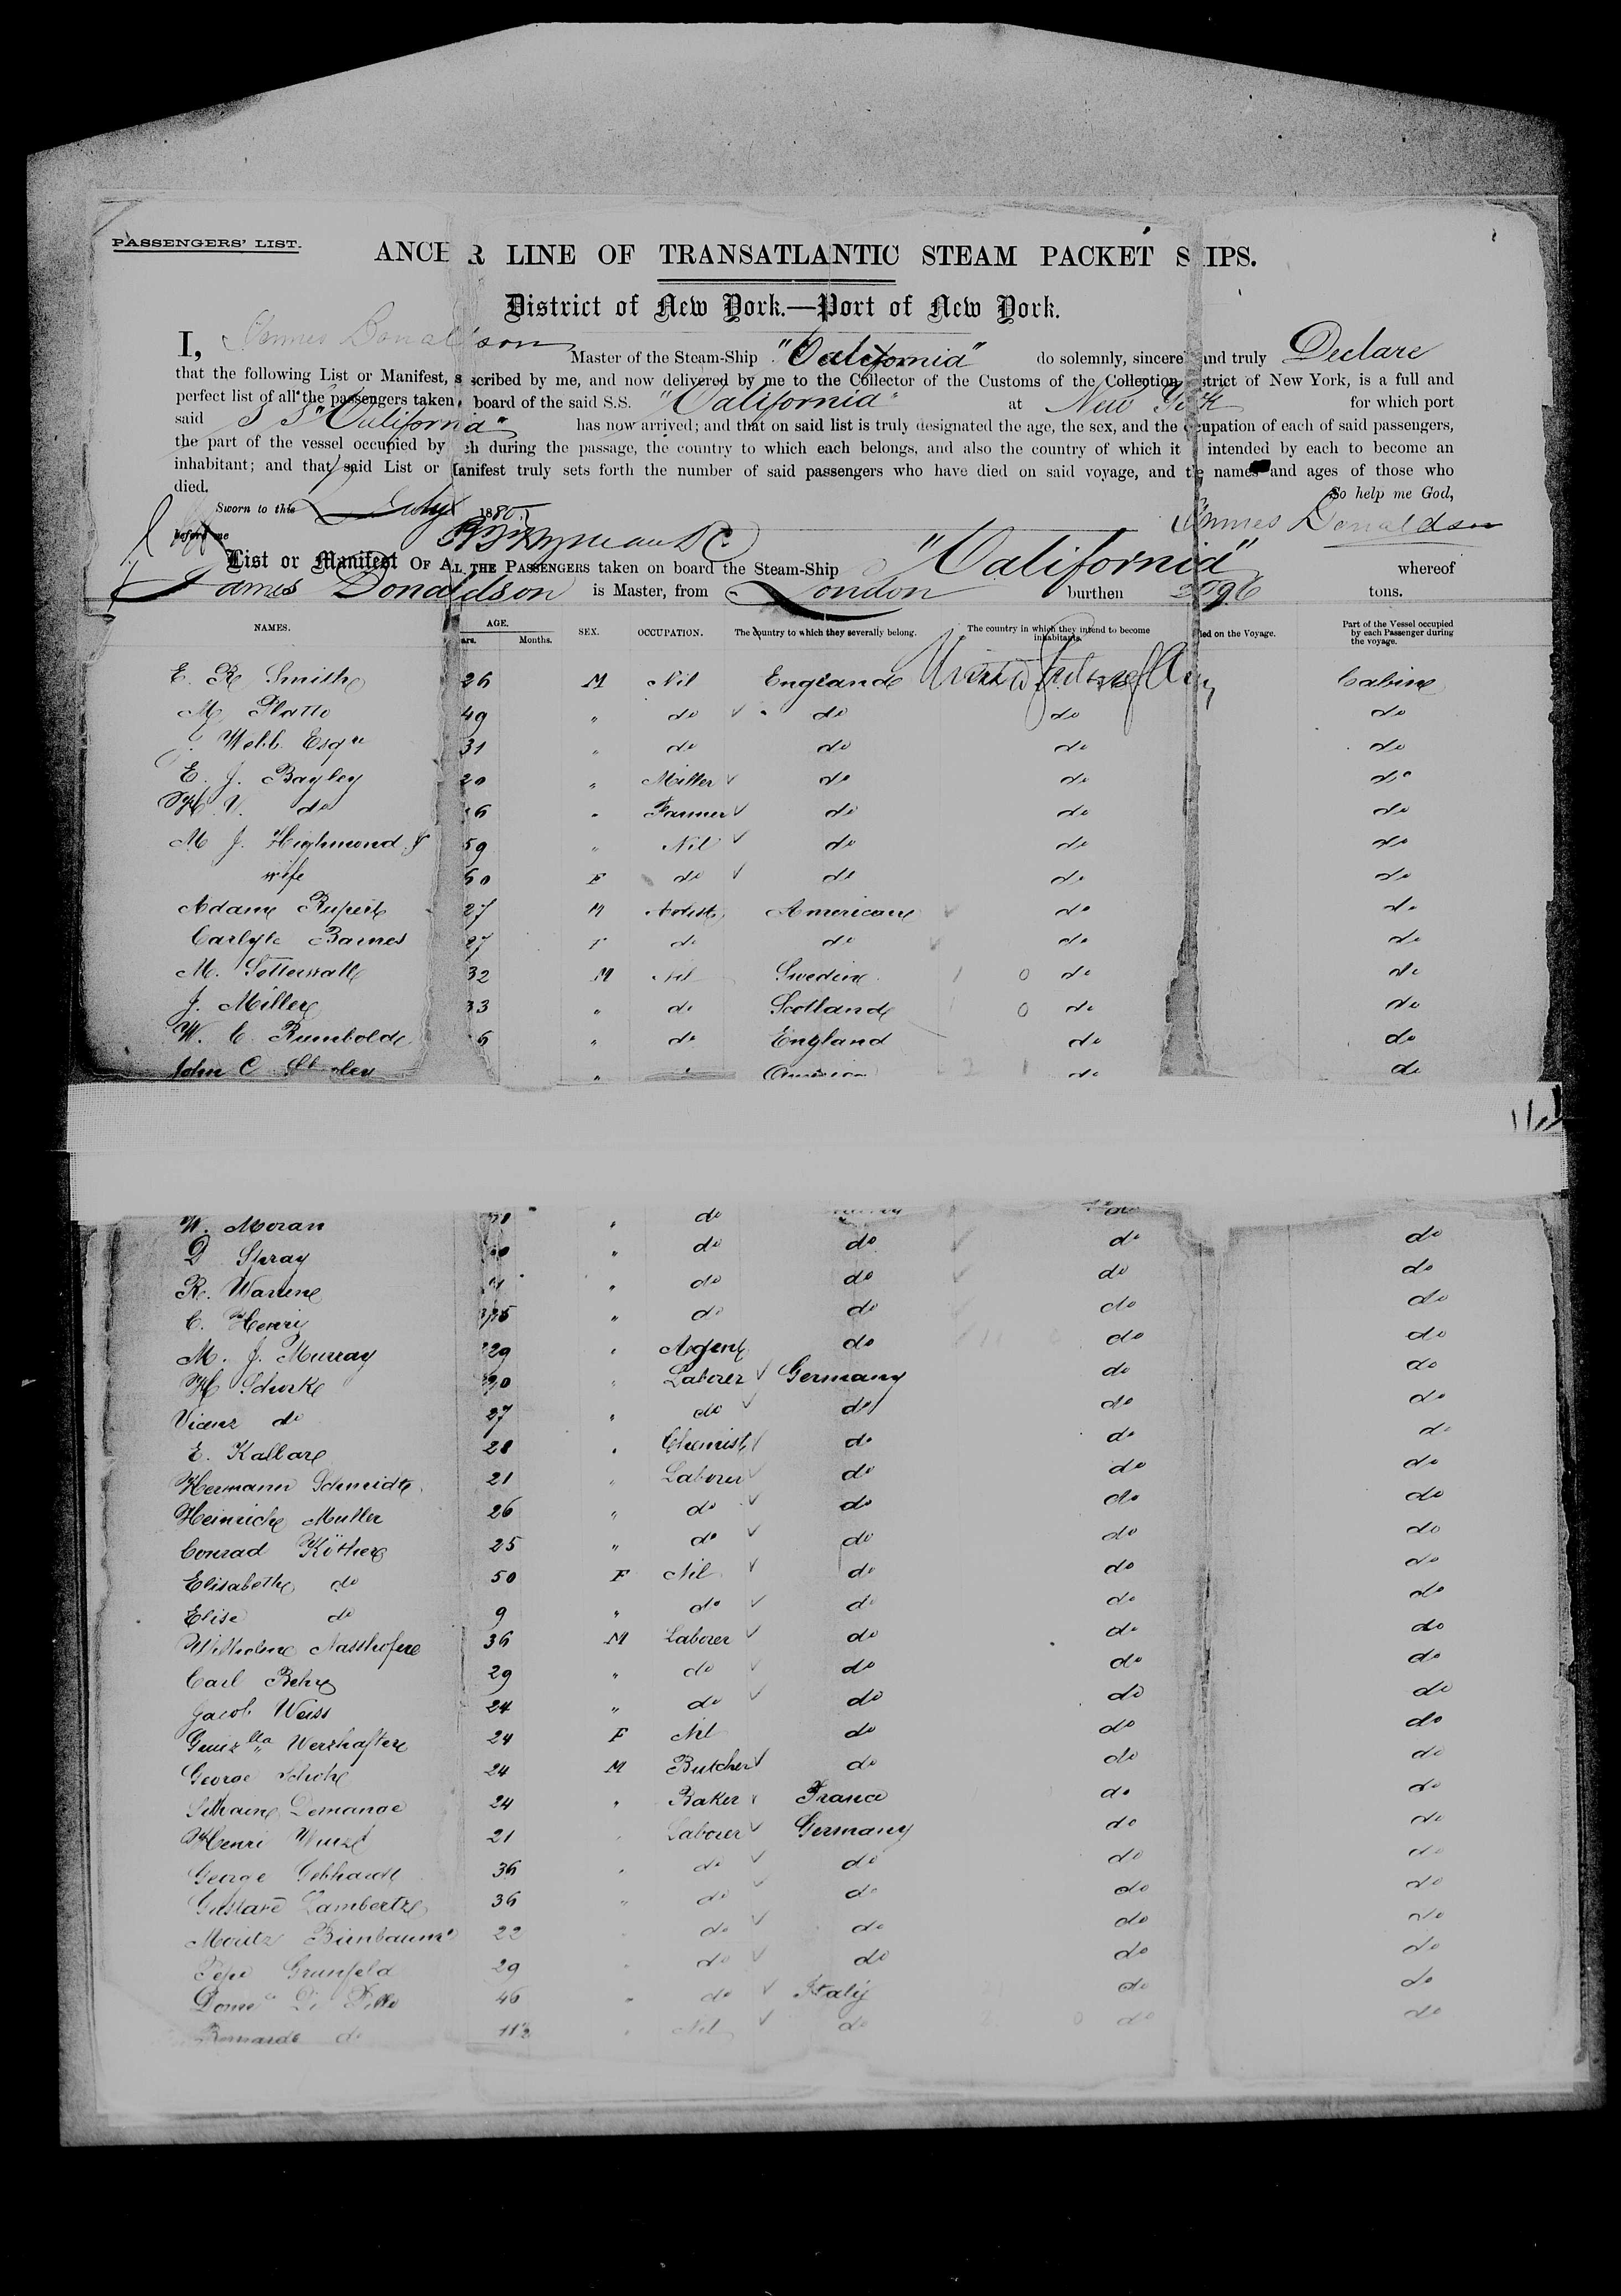 PASSENGERS' LIST.
ANCH R LINE OF TRANSATLANTIC STEAM PACKET S IPS.
District of New York.—Port of New York.
I, James Donaldson Master of the Steam-Ship "California" do solemnly, sincere and truly Declare
that the following List or Manifest, s scribed by me, and now delivered by me to the Collector of the Customs of the Collection strict of New York, is a full and
perfect list of all the passengers taken board of the said S.S. "California" at New York for which port
said S S "California" has now arrived; and that on said list is truly designated the age, the sex, and the cupation of each of said passengers,
the part of the vessel occupied by ch during the passage, the country to which each belongs, and also the country of which it intended by each to become an
inhabitant; and that said List or Manifest truly sets forth the number of said passengers who have died on said voyage, and the names and ages of those who
died. So help me God,
Sworn to this July 1885 James Donaldson
before me
List or Manifest OF ALL THE PASSENGERS taken on board the Steam-Ship "California" whereof
James Donaldson is Master, from London burthen tons.
NAMES. AGE. ars. Months. SEX. OCCUPATION. The country to which they severally belong. The country in which they intend to become inhabitants. ied on the Voyage. Part of the Vessel occupied by each Passenger during the voyage.
E. R Smith 26 M Nil England United States of Cabin
M. Platto 49 " do do do do
Webb Esqre 31 " do do do do
E. J. Bayley 20 " Miller do do do
H. V. do 6 " Farmer do do do
M J. Highmond & 59 " Nil do do do
wife 60 F do do do do
Adam Rupert 27 M Artist American do do
Carlyle Barnes 27 F do do do do
M. 32 M Nil Sweden 1 0 do do
J. Miller 33 " do Scotland 0 do do
W. C. Rumbold 6 " do England do do
John C " do do
W. Moran " do do
D Spray " do do do do
R. Warren " do do do do
C. Henry " do do do do
M. J. Murray 29 " Agent do do do
H Schork " Laborer Germany do do
do 27 " do do do do
E. Kalbare 28 " Chemist do do do
Hermann Schmidt 21 " Laborer do do do
Heinrich Muller 26 " do do do do
Conrad Köther 25 " do do do do
Elisabeth do 50 F Nil do do do
Elise do 9 " do do do do
Wilhelm Nasshofer 36 M Laborer do do do
Carl Behr 29 " do do do do
Jacob Weiss 24 " do do do do
24 F Nil do do do
George 24 M Butcher do do do
Demange 24 " Baker France do do
Henri 21 " Laborer Germany do do
George Gebhardt 36 " do do do do
Gustave Lambertz 36 " do do do do
Moritz Birnbaum 22 " do do do do
Pepi Grunfeld 29 " do do do do
46 " do Italy do do
do 11 " Nil do do do